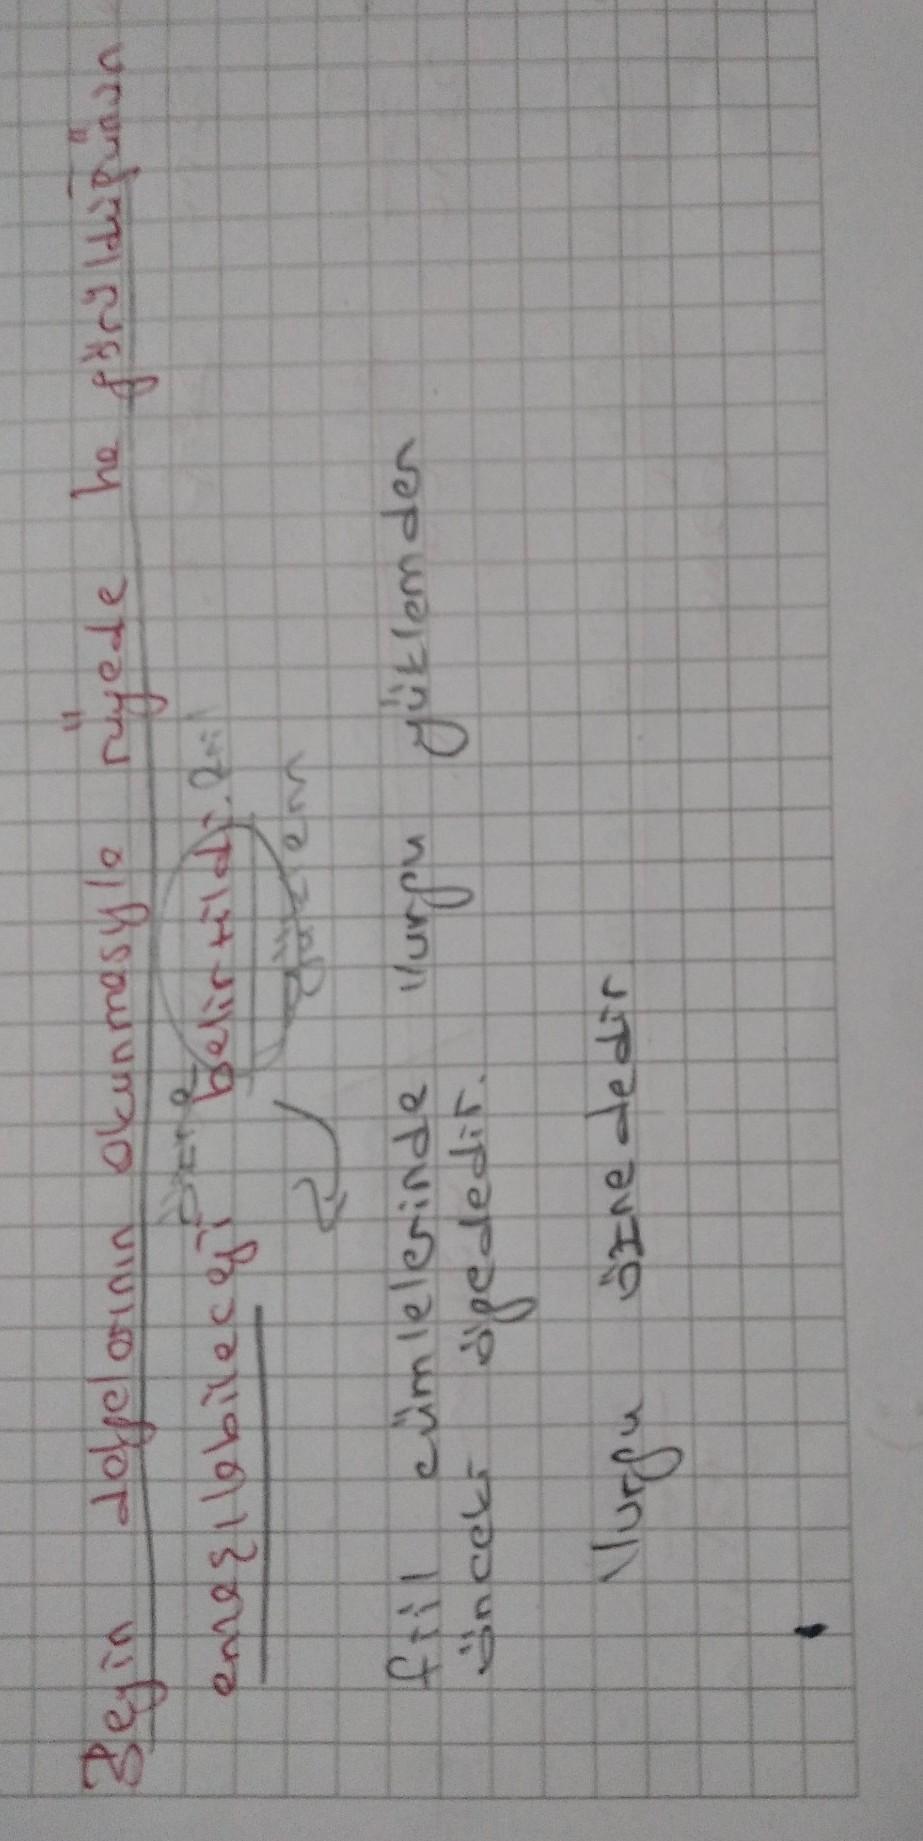 Beyin dalgalarının okunmasyla rüyede ne görüldüğünün
özne
engllabileceği belirtildi. fiil
yüklem
fiil cümlelerinde vurgu yüklemden
önceki ögededir.
Vurgu öznededir